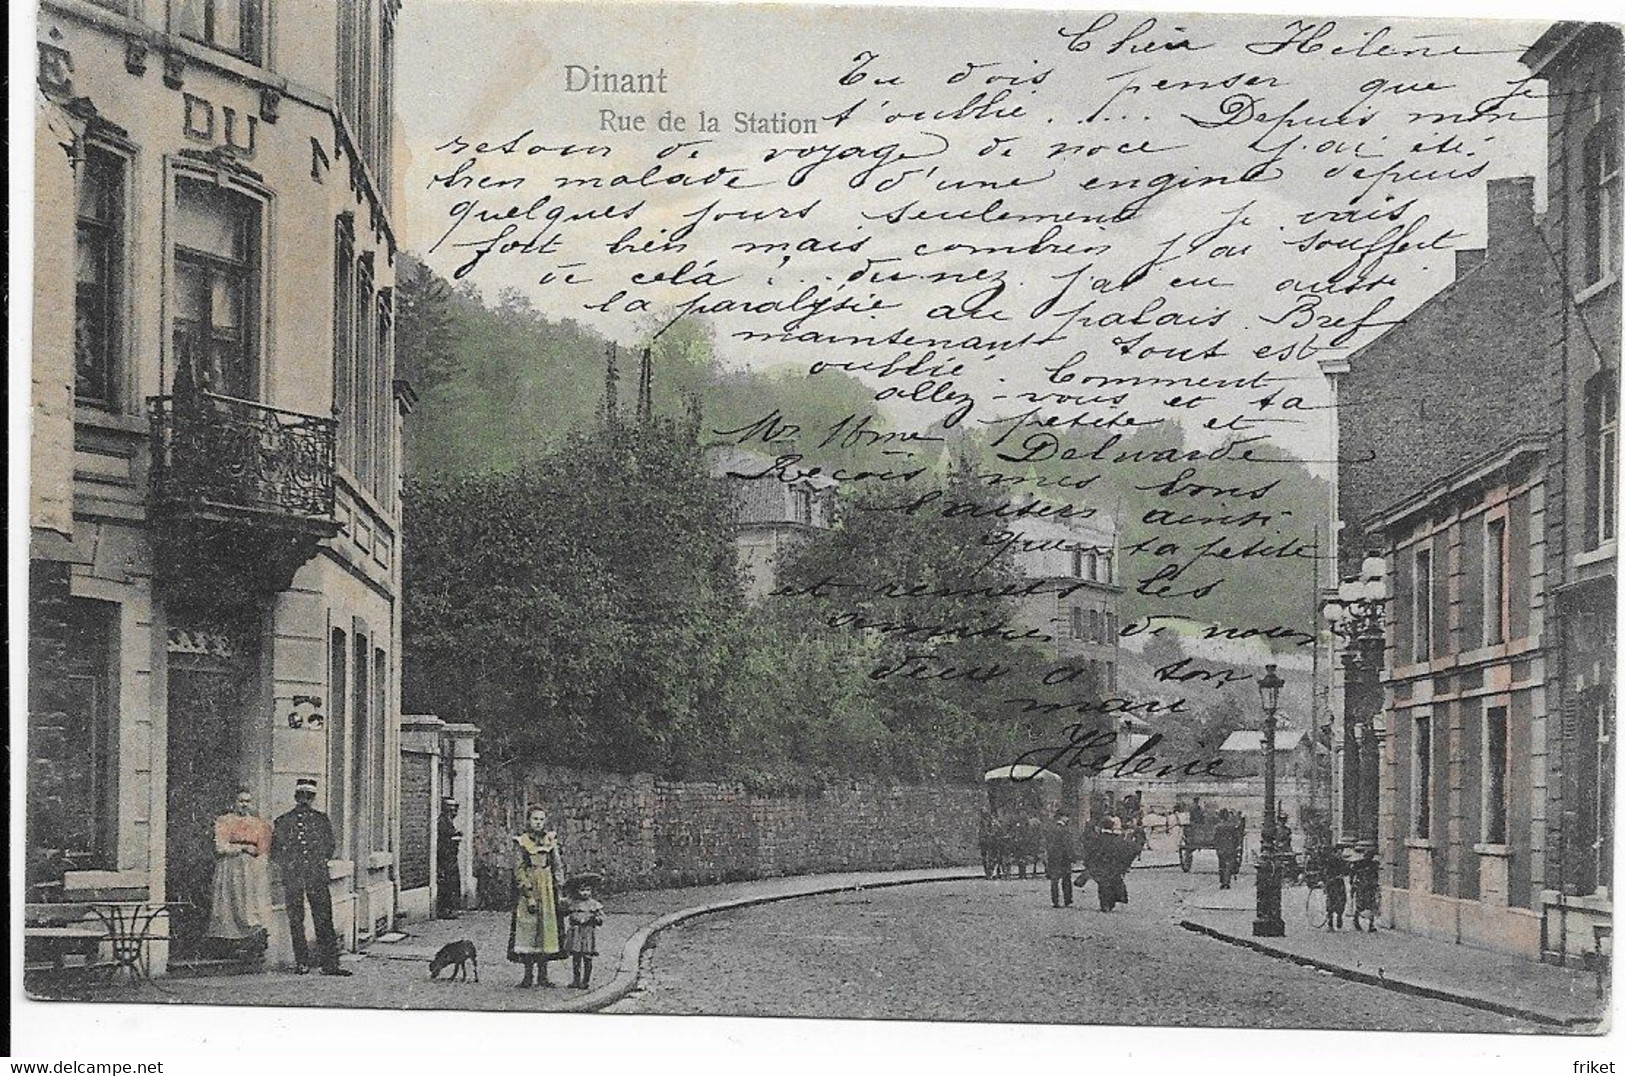 Dinant
Rue de la Station
É DU N
63
Chère Hélène
Tu dois penser que je
t'oublie..... Depuis mon
retour de voyage de noce j'ai été
bien malade d'une engine depuis
quelques jours seulement je vais
fort bien mais combien j'ai souffert
de celà ?.. du nez. j'ai eu aussi
la paralysie au palais. Bref
maintenant tout est
oublié. Comment
allez-vous et ta
petite et
Mr Mme Delwarde
Recois mes bons
baisers ainsi
que ta petite
et remets les
amitiés de nous
deux a ton
mari
Helene
friket